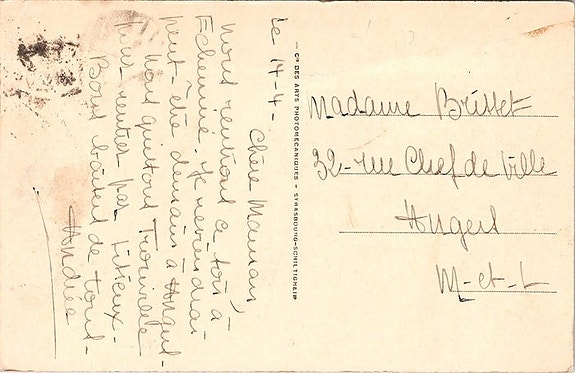 le 14-4-
Chère Maman,
nous rentrons ce soir à
Echemiré. Je reviendrai
peut-être demain à Angers-
Nous quittons Trouville
pour rentrer par Lisieux-
Bons baisers de tous-
Andrée
- Cie DES ARTS PHOTOMÉCANIQUES - STRASBOURG-SCHILTIGHEIM
Madame Brisset
32-rue Chef de Ville
Angers
M-et-L